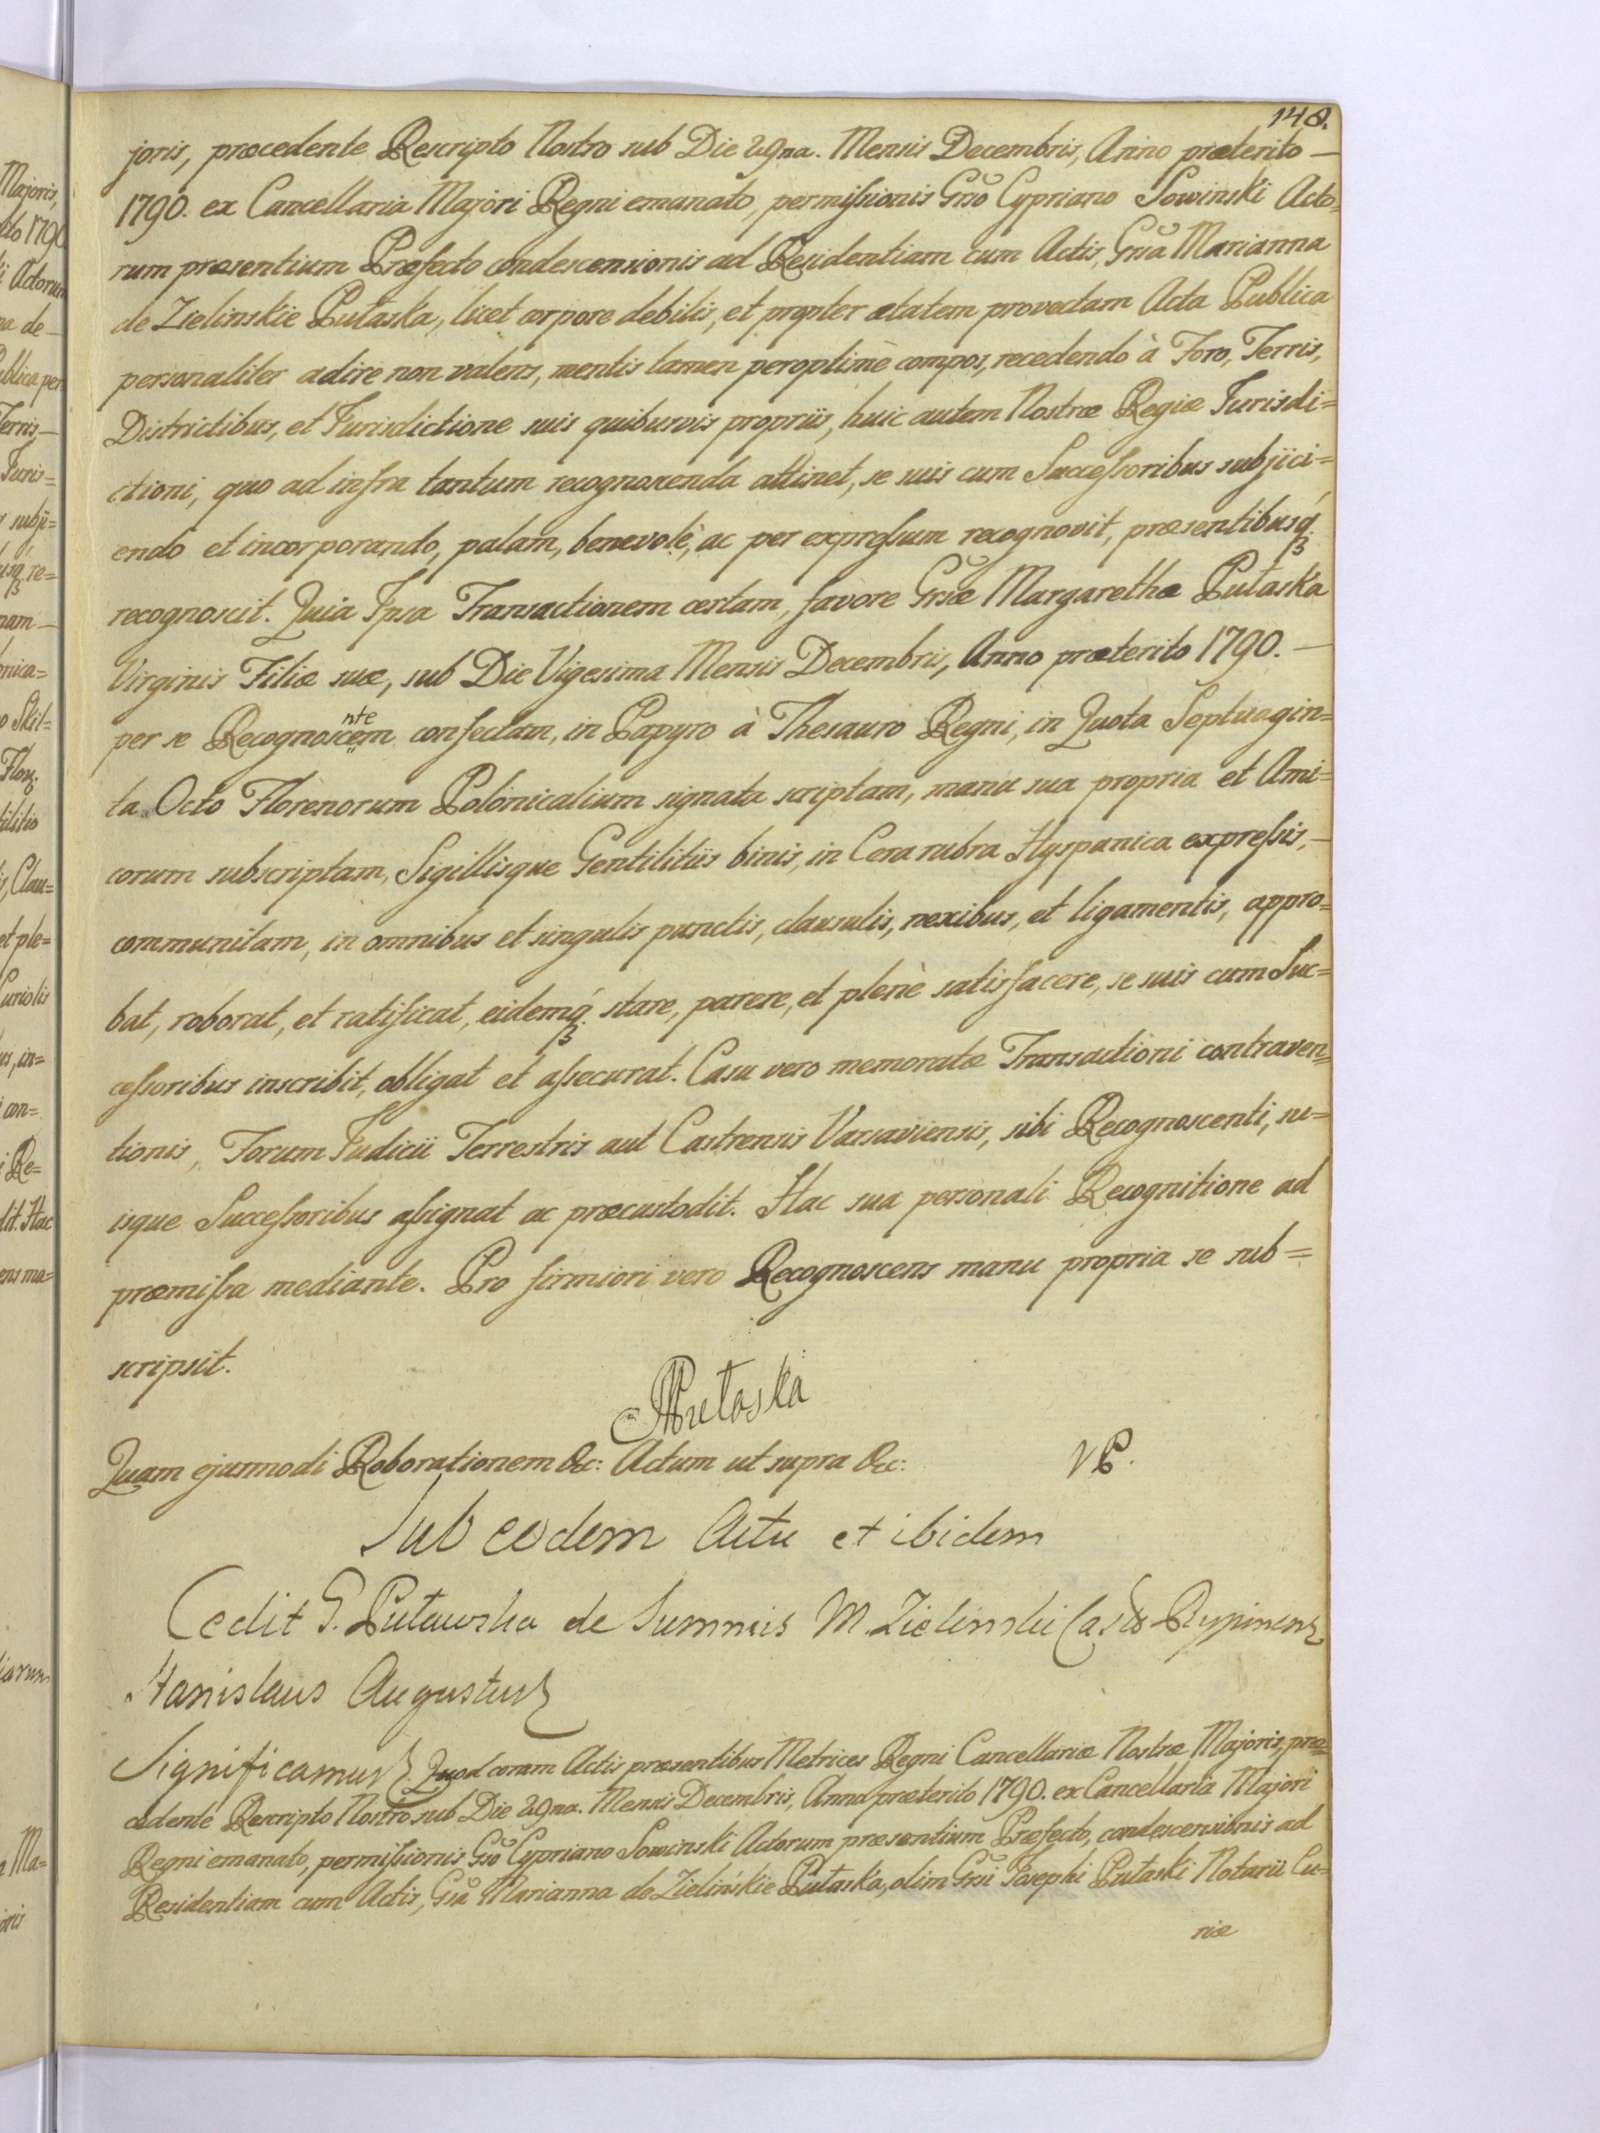 148.
joris, præcedente Rescripto Nostro sub Die 29na. Mensis Decembris, Anno præterito —
1790. ex Cancellaria Majori Regni emanato, permissionis Gsso Cypriano Sowinski Acto=
rum præsentium Præfecto condescensionis ad Residentiam cum Actis, Gssa Marianna
de Zielinskie Pułaska, licet corpore debilis, et propter ætatem provectam Acta Publica
personaliter adire non valens, mentis tamen peroptimè compos, recedendo à Foro, Terris,
Districtibus, et Jurisdictione suis quibusvis propriis, huic autem Nostræ Regiæ Jurisdi=
ctioni, quo ad infra tantum recognoscenda attinet, se suis cum Successoribus subjici=
endo et incorporando, palam, benevolè, ac per expressum recognovit, præsentibusq́
recognoscit. Quia Ipsa Transactionem certam, favore Gssæ Margarethæ Pułaska
Virginis Filiæ suæ, sub Die Vigesima Mensis Decembris, Anno præterito 1790. —
per se Recognoscentem confectam, in Papyro à Thesauro Regni, in Quota Septuagin=
ta Octo Florenorum Polonicalium signata scriptam, manu sua propria et Ami=
corum subscriptam, Sigillisque Gentilitiis binis, in Cera rubra Hyspanica expressis, —
communitam, in omnibus et singulis punctis, clausulis, nexibus, et ligamentis, appro=
bat, roborat, et ratificat, eidemq́ stare, parere, et plenè satisfacere, se suis cum Suc=
cessoribus inscribit, obligat et assecurat. Casu vero memoratæ Transactioni contraven=
tionis, Forum Judicii Terrestris aut Castrensis Varsaviensis, sibi Recognoscenti, su=
isque Successoribus assignat ac præcustodit. Hac sua personali Recognitione ad
præmissa mediante. Pro firmiori vero Recognoscens manu propria se sub=
scripsit.
MPułaska
Quam ejusmodi Roborationem &c: Actum ut supra &c:
Sub eodem Actu et ibidem
Cedit G. Puławska de Summis M. Zielinski Rypinens
Stanislaus Augustus
Significamus Quod coram Actis præsentibus Metrices Regni Cancellariæ Nostræ Majoris, præ=
cedente Rescripto Nostro sub Die 29na. Mensis Decembris, Anno præterito 1790. ex Cancellaria Majori
Regni emanato, permissionis Gsso Cypriano Sowinski Actorum præsentium Præfecto, condescensionis ad
Residentiam cum Actis, Gssa Marianna de Zielińskie Pułaska, olim Gssi Josephi Pułaski Notarii Cu=
riæ